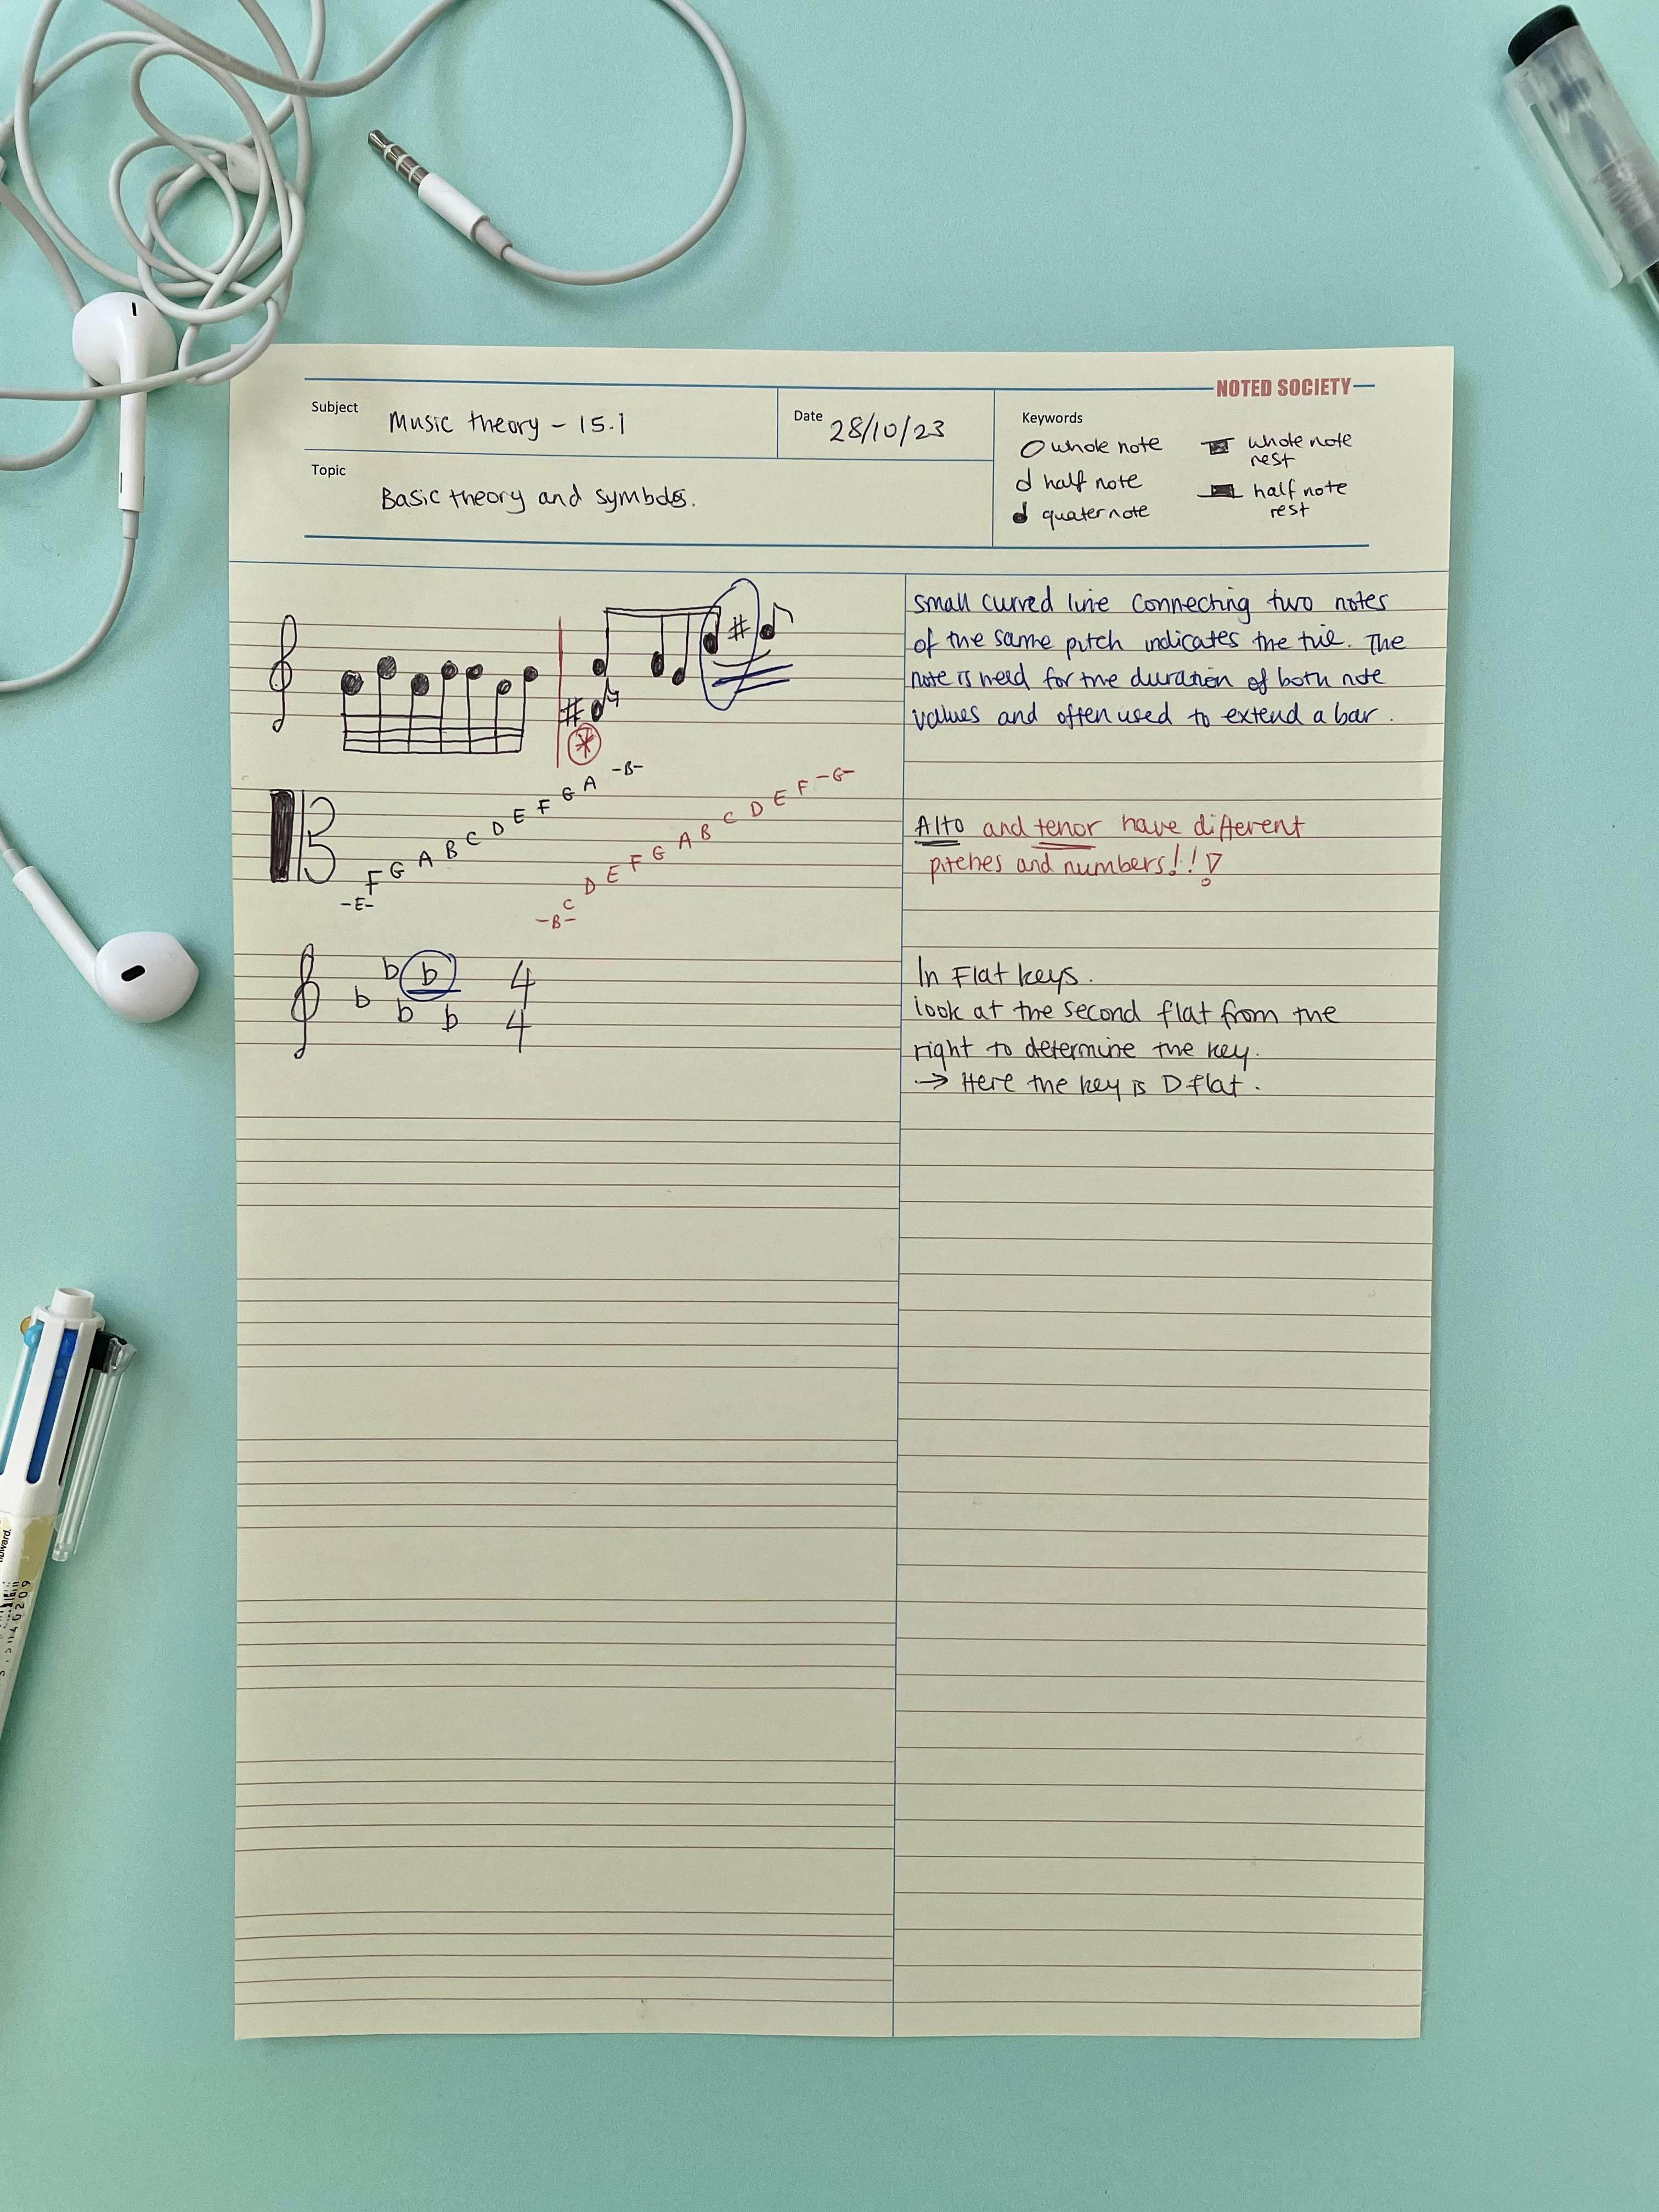 NOTED SOCIETY
Subject Music theory - 15.1
Date 28/10/23
Topic Basic theory and symbols.
Keywords
whole note
half note
quater note
whole note
rest
half note
rest
small curved line connecting two notes
of the same pitch indicates the tie. The
note is held for the duration of both note
values and often used to extend a bar.
# #
*
-E- F G A B C D E F G A -B-
-B- C D E F G A B C D E F -G-
Alto and tenor have different
pitches and numbers!!!
b b b b b 4
4
In Flat keys.
look at the second flat from the
right to determine the key.
→ Here the key is D flat.